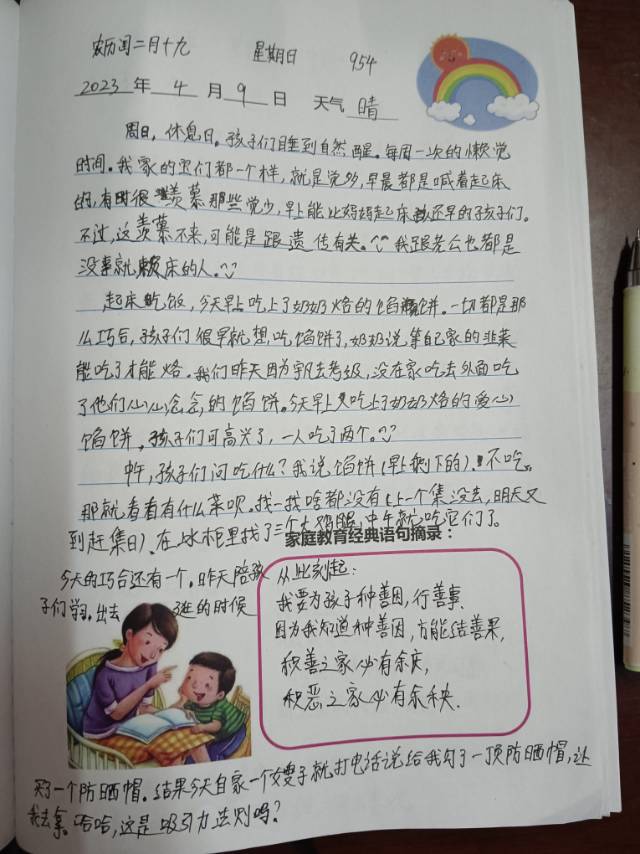 农历闰二月十九 星期日 954
2023 年 4 月 9 日 天气 晴
周日，休息日。孩子们睡到自然醒。每周一次的懒觉
时间。我家的宝们都一个样，就是觉多，早晨都是喊着起床
的，有时很羡慕那些觉少，早上能比妈妈起床还早的孩子们。
不过，这羡慕不来，可能是跟遗传有关。我跟老公也都是
没事就赖床的人。
起床吃饭，今天早上吃上了奶奶烙的馅饼。一切都是那
么巧合，孩子们很早就想吃馅饼了，奶奶说等自己家的韭菜
能吃了才能烙。我们昨天因为去考级，没在家吃去外面吃
了他们心心念念的馅饼。今天早上又吃上了奶奶烙的爱心
馅饼，孩子们可高兴了，一人吃了两个。
中午，孩子们问吃什么？我说馅饼(早上剩下的)。不吃。
那就看看有什么菜呗。找一找啥都没有(上一个集没去，明天又
到赶集日)。在冰柜里找了三个大鸡腿，中午就吃它们了。
家庭教育经典语句摘录：
今天的巧合还有一个。昨天陪孩
子们学习。出去逛的时候
从此刻起：
我要为孩子种善因，行善事.
因为我知道种善因，方能结善果，
积善之家必有余庆，
积恶之家必有余秧.
买了一个防晒帽。结果今天自家一个嫂子就打电话说给我勾了一顶防晒帽，让
我去拿。哈哈，这是吸引力法则吗？